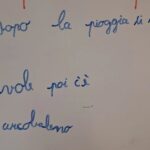 dopo la pioggia
poi c'è
arcobaleno